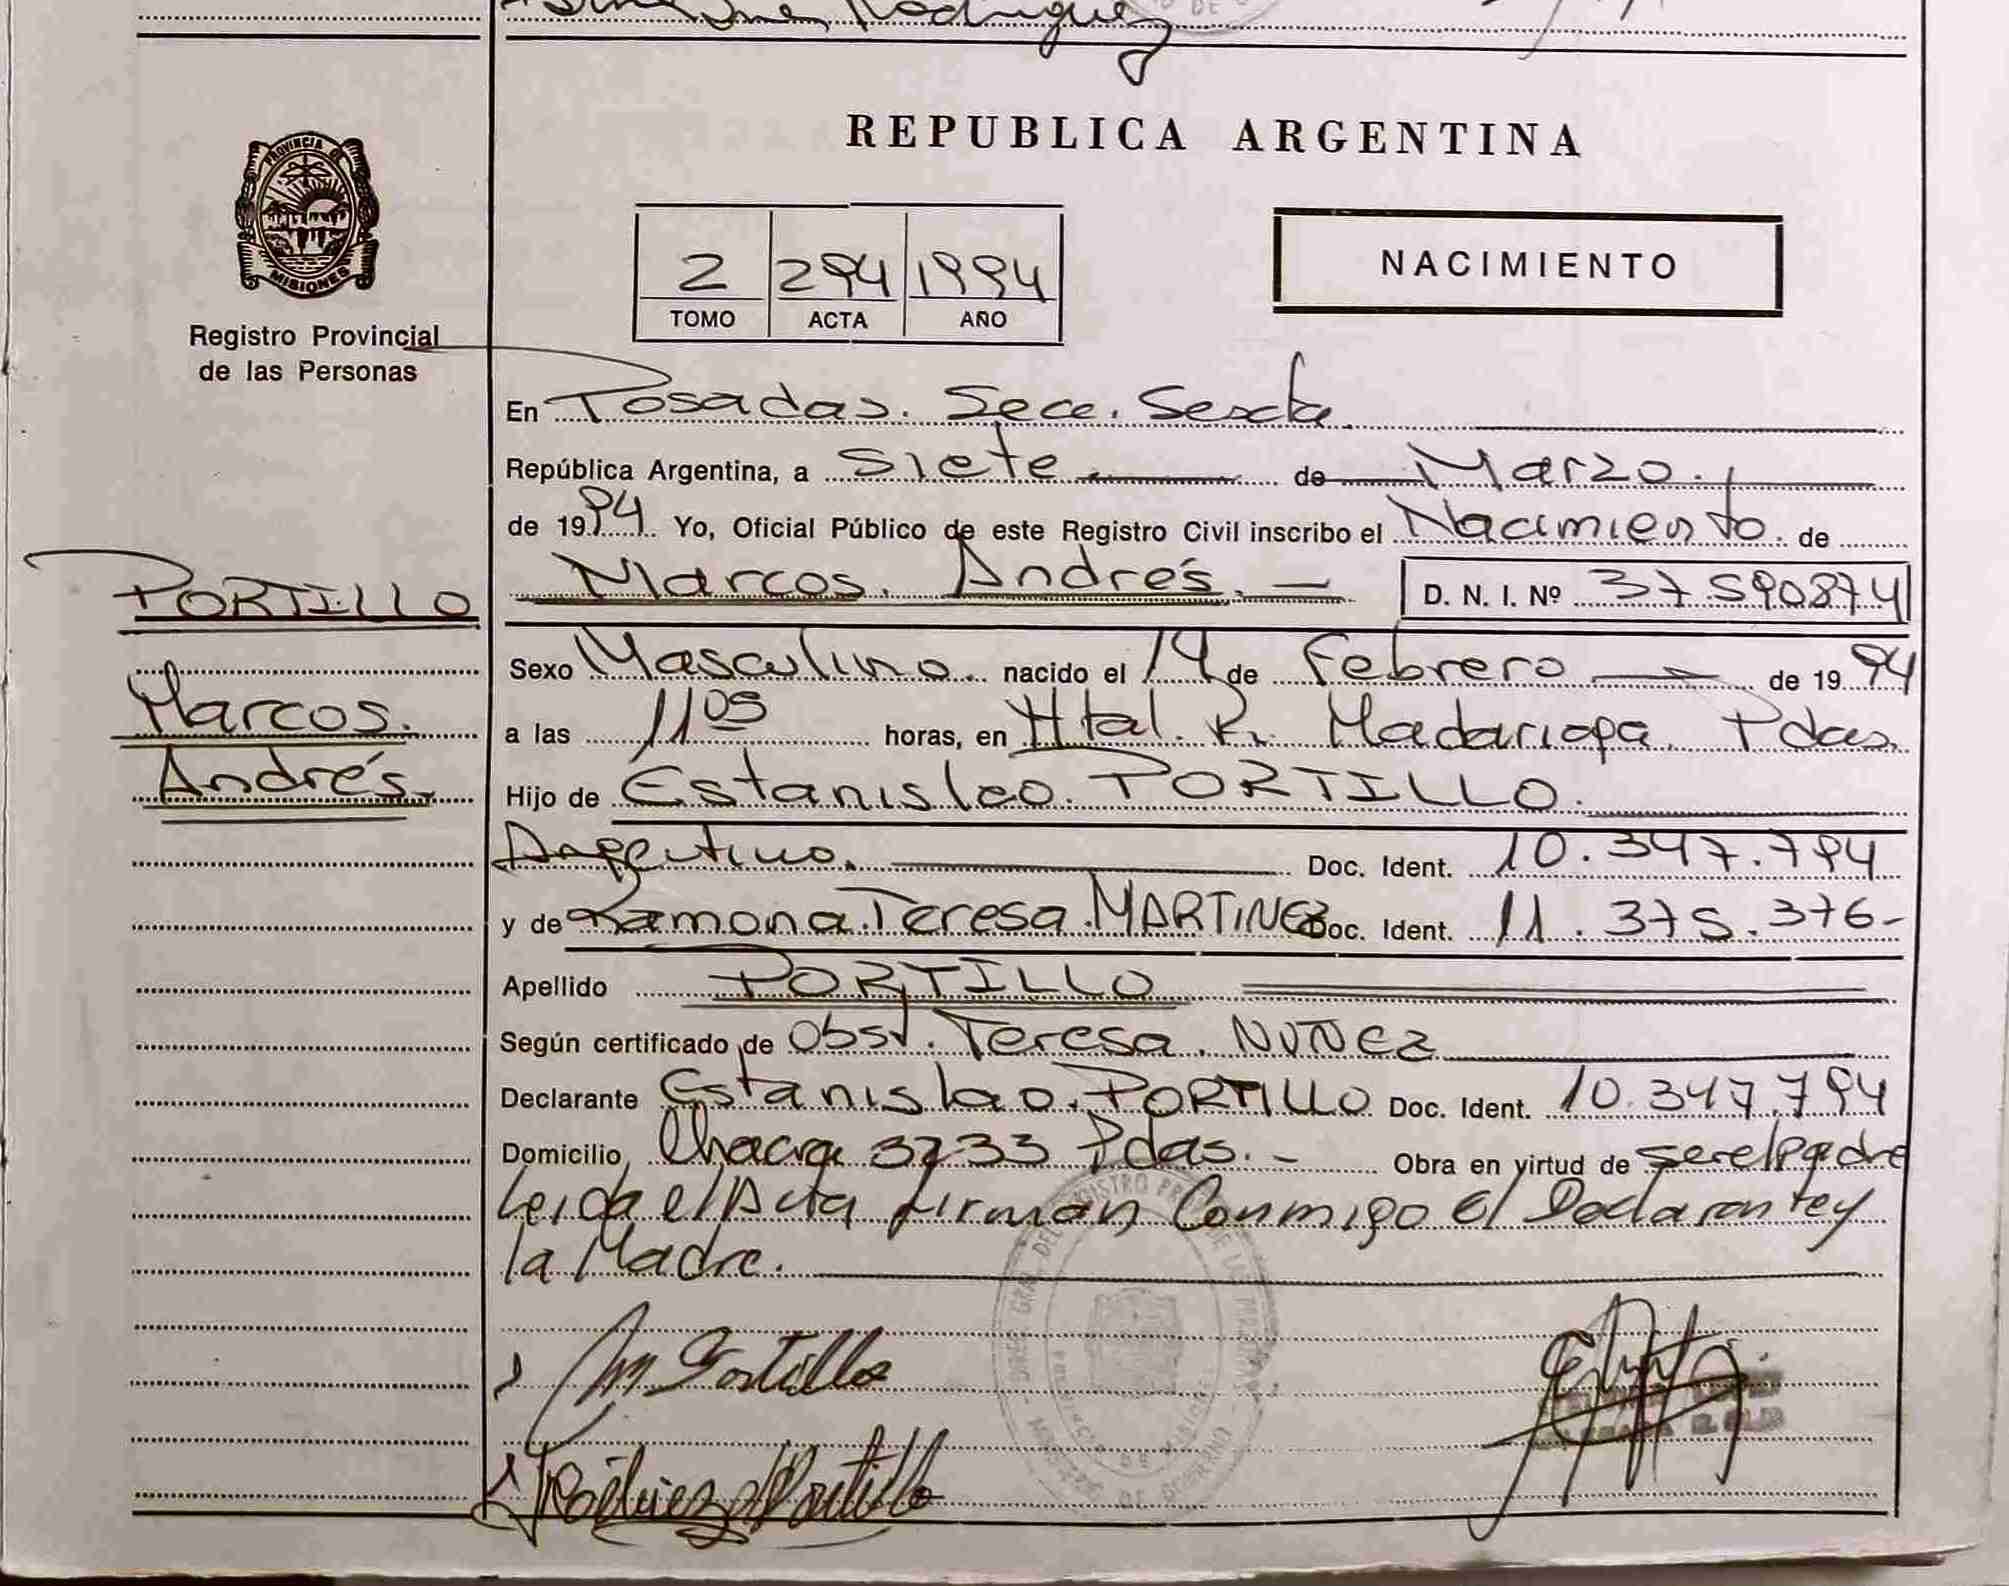 Rodriguez
PROVINCIA DE
MISIONES
Registro Provincial
de las Personas
REPUBLICA ARGENTINA
2 294 1994
TOMO ACTA AÑO
NACIMIENTO
En Posadas. Secc. Sexta
República Argentina, a Siete de Marzo.
de 1994 Yo, Oficial Público de este Registro Civil inscribo el Nacimiento de
PORTILLO
Marcos.
Andrés.
Marcos. Andrés. D. N. I. Nº 37590874
Sexo Masculino nacido el 14 de Febrero de 1994
a las 11 05 horas, en Htal. R. Madariaga. Pdas.
Hijo de Estanislao. PORTILLO.
Argentino. Doc. Ident. 10.347.794
y de Ramona.Teresa.MARTINEZ Doc. Ident. 11.375.376-
Apellido PORTILLO
Según certificado de Obst. Teresa. NUÑEZ
Declarante Estanislao. PORTILLO Doc. Ident. 10.347.794
Domicilio Chacra 3233 Pdas. - Obra en virtud de ser el padre
Leída el Acta firman Conmigo el Declarante y
la Madre.
M Portillo
Portillo